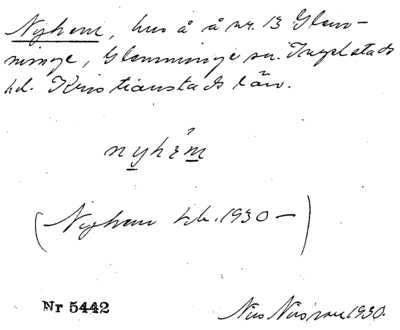 Nyhem, hus å å nr. 13 Glem-
minge, Glemminge sn. Ingelstads
hd. Kristianstads län.
nyhém
(Nyhem kk. 1930 —)
Nr 5442 Nils 1930.